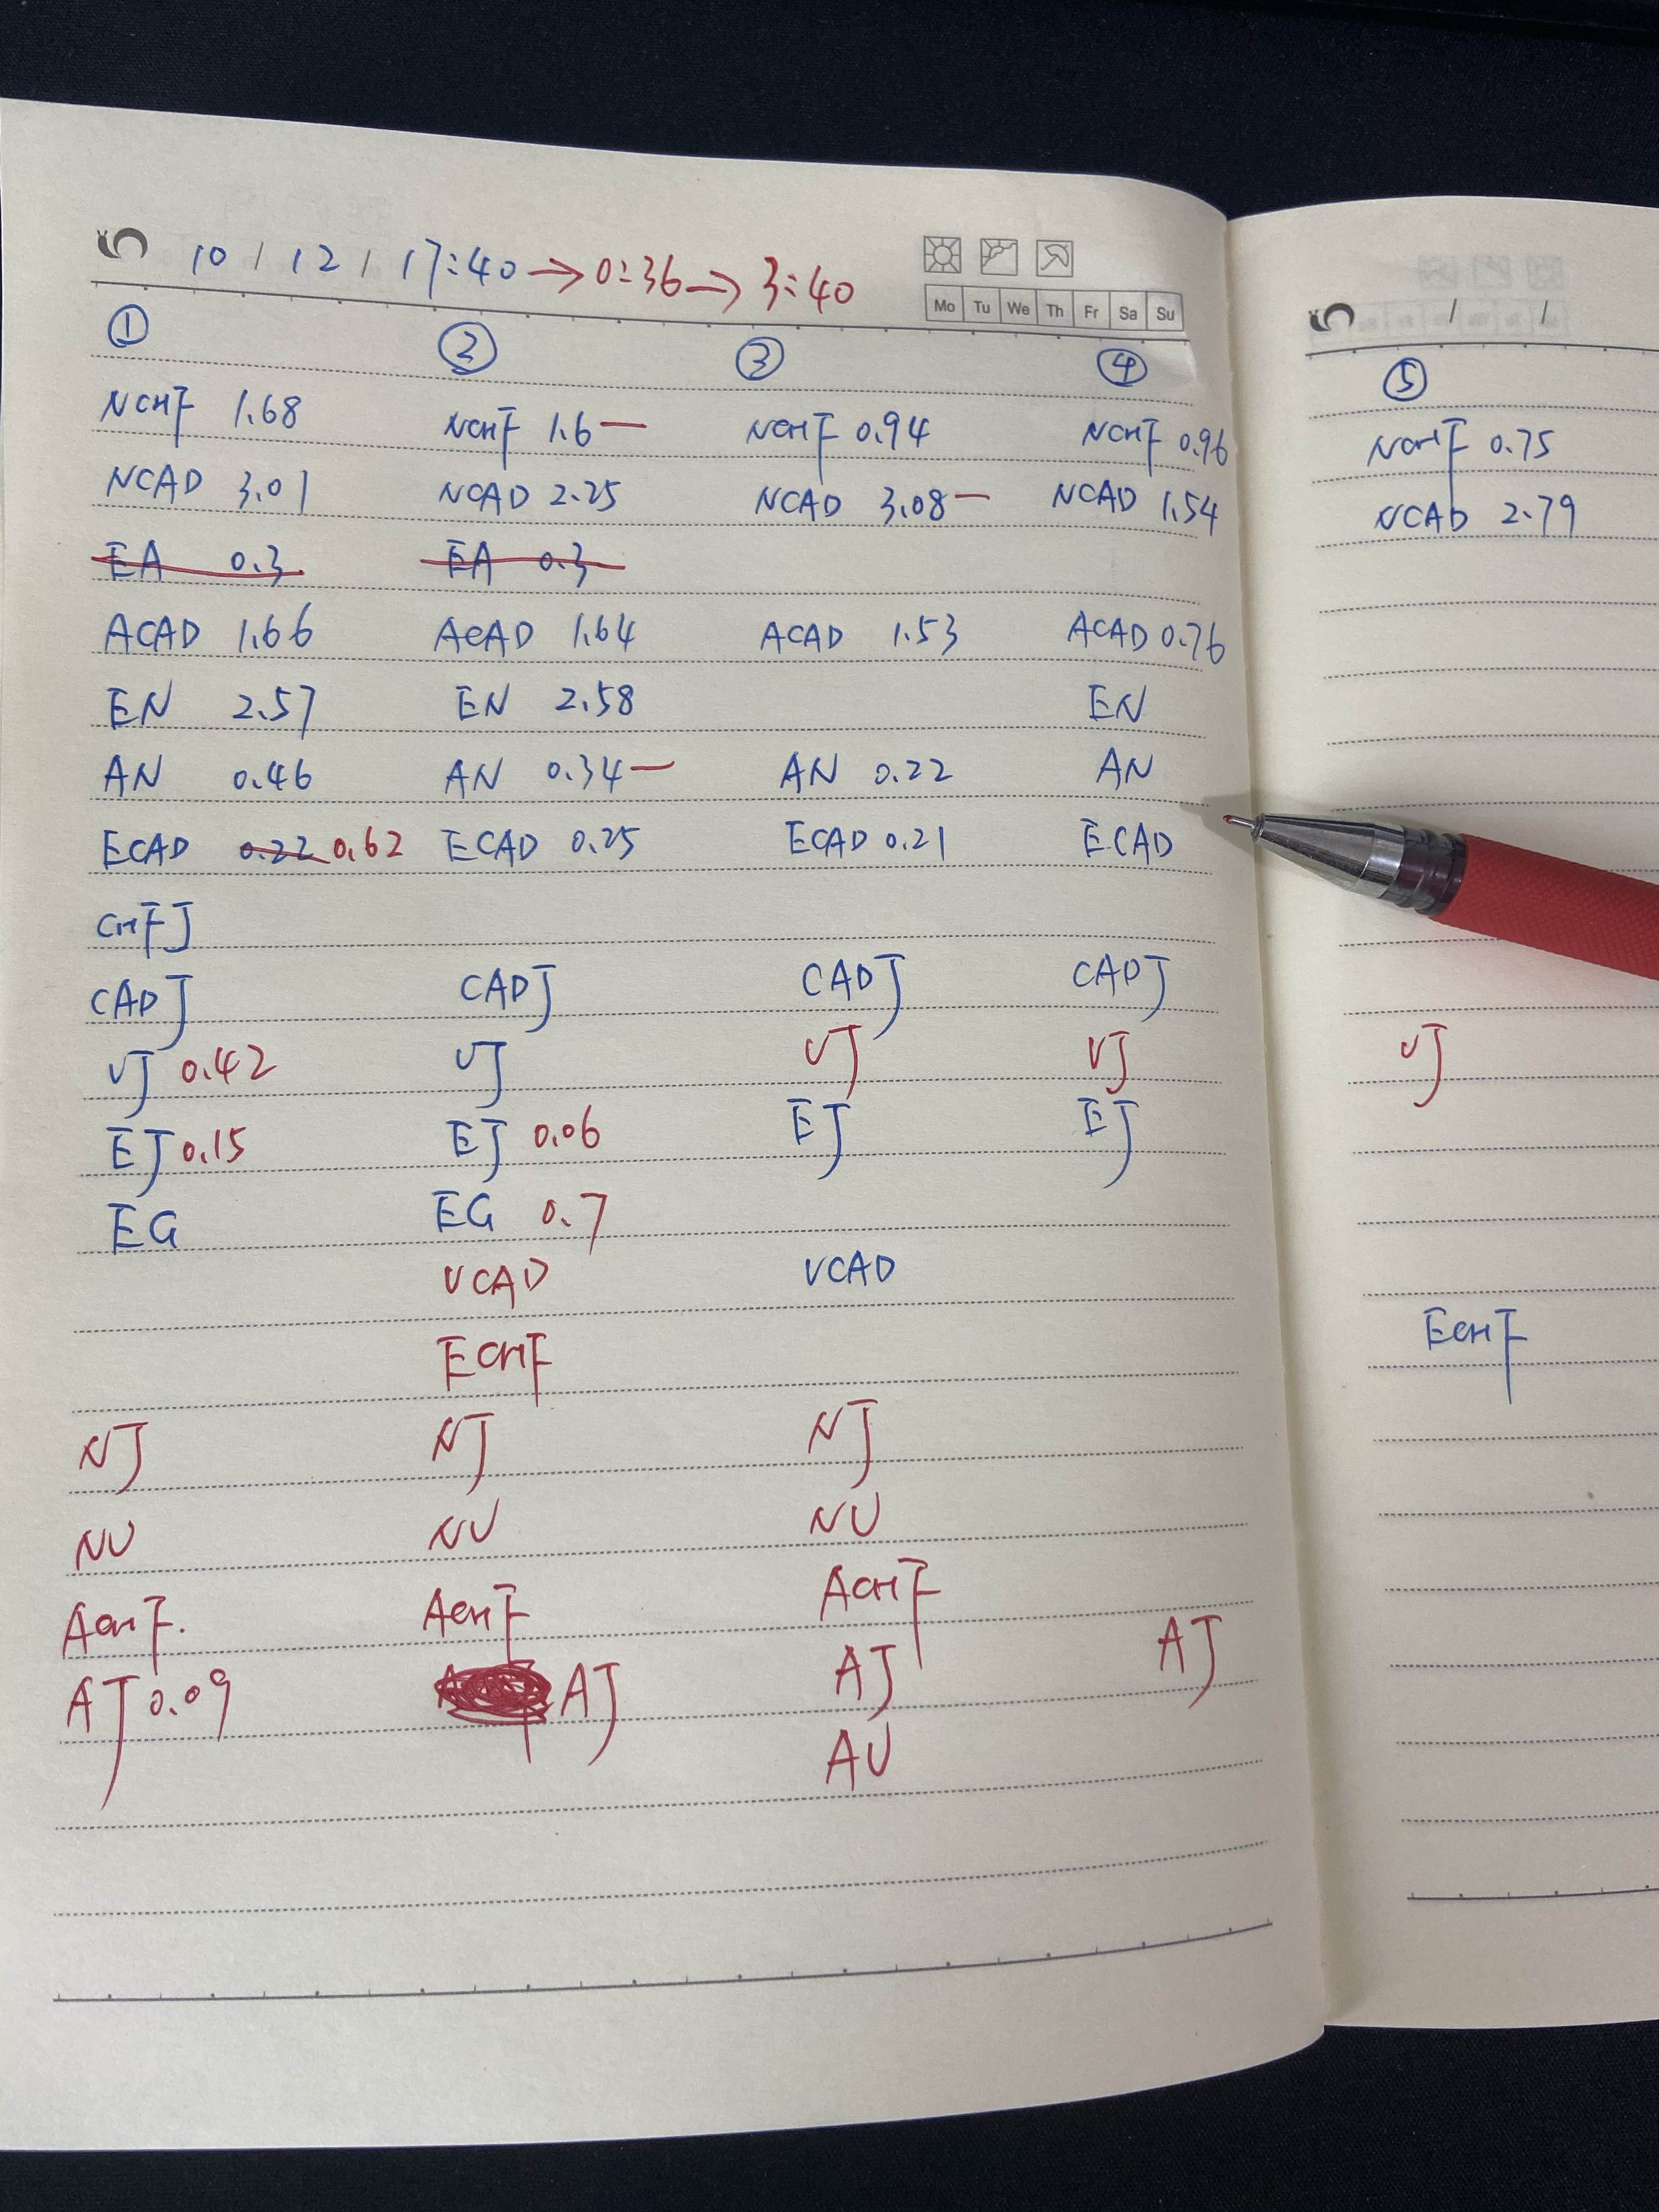 10 / 12 / 17:40 → 0:36 → 3:40
Mo Tu We Th Fr Sa Su
/ /
① ② ③ ④ ⑤
NCHF 1.68 NCHF 1.6 — NCHF 0.94 NCHF 0.96 NCHF 0.75
NCAD 3.01 NCAD 2.25 NCAD 3.08 — NCAD 1.54 NCAD 2.79
EA 0.3 EA 0.3
ACAD 1.66 ACAD 1.64 ACAD 1.53 ACAD 0.76
EN 2.57 EN 2.58 EN
AN 0.46 AN 0.34 — AN 0.22 AN
ECAD 0.22 0.62 ECAD 0.25 ECAD 0.21 ECAD
CHFJ
CADJ CADJ CADJ CADJ
UJ 0.42 UJ UJ UJ UJ
EJ 0.15 EJ 0.06 EJ EJ
EG EG 0.7
UCAD UCAD
ECHF ECHF
NJ NJ NJ
NU NU NU
ACHF. ACHF ACHF
AJ 0.09 AJ AJ AJ
AU